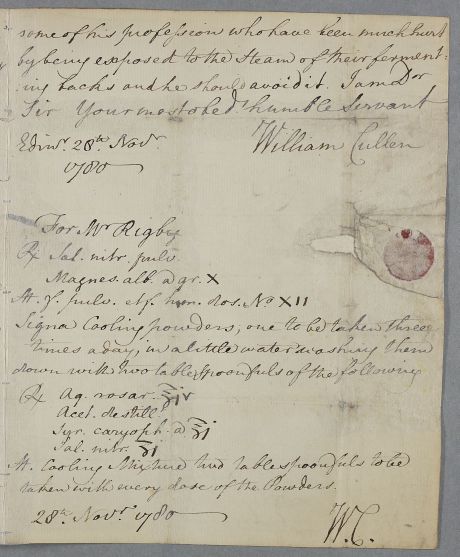 some of his profession who have been much hurt
by being exposed to the Steam of their ferment:
ing backs and he should avoid it. I am Dor
Sir Your most obedt humble Servant
Edinr. 28th. Novr. William Cullen
1780
For Mr Rigby
℞ Sal. nitr. pulv.
Magnes. alb. a gr. X
M. f. pulv. dos. No XII
Signa Cooling powders, one to be taken three
times a day, in a little water washing them
down with two table spoonfuls of the following
℞ Aq. rosar. ℥iv
Acet. destill.
Syr. caryoph. a ℥j
Sal. nitr. ʒj
M. Cooling Mixture two tablespoonfuls to be
taken with every dose of the Powders.
28th. Novr. 1780 W.C.